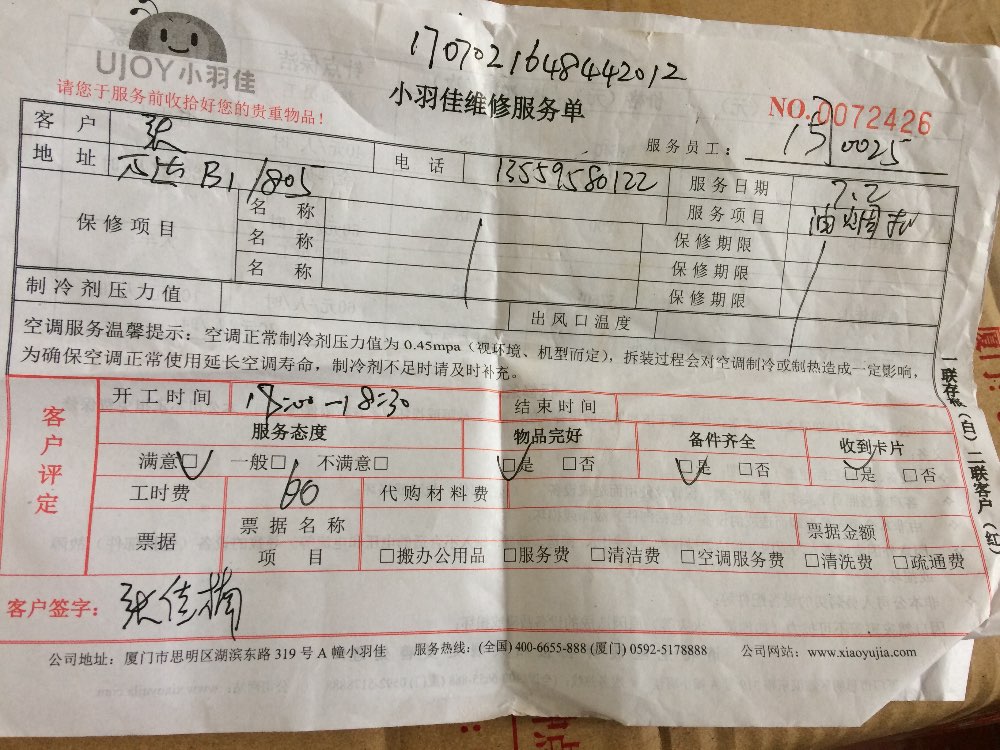 UJOY小羽佳
1707021648442012
请您于服务前收拾好您的贵重物品！
小羽佳维修服务单
NO.0072426
服务员工：0025
客 户 张 电 话 13559580122 服务日期 7.2
地 址 B1 1805 服务项目 油烟机
保修项目 名 称 保修期限
名 称 保修期限
名 称 保修期限
制冷剂压力值 出风口温度
空调服务温馨提示：空调正常制冷剂压力值为 0.45mpa（视环境、机型而定），拆装过程会对空调制冷或制热造成一定影响，
为确保空调正常使用延长空调寿命，制冷剂不足时请及时补充。
客户评定
开工时间 18:00-18:30 结束时间
服务态度 物品完好 备件齐全 收到卡片
满意□ 一般□ 不满意□ □是 □否 □是 □否 □是 □否
工时费 60 代购材料费
票据 票据名称 票据金额
项 目 □搬办公用品 □服务费 □清洁费 □空调服务费 □清洗费 □疏通费
客户签字：张佳楠
公司地址：厦门市思明区湖滨东路 319 号 A 幢小羽佳 服务热线：(全国) 400-6655-888 (厦门) 0592-5178888 公司网站：www.xiaoyujia.com
一联存根（白）二联客户（红）